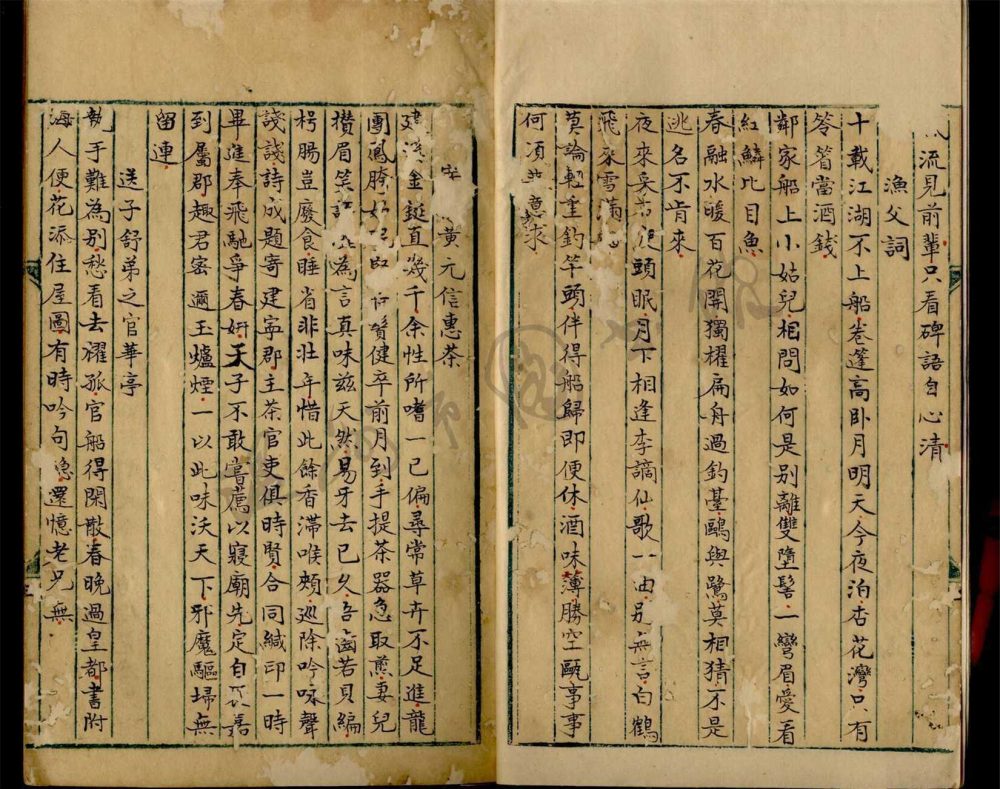 流見前輩只看碑語自心清
漁父詞
十載江湖不上船卷篷高卧月明天今夜泊杏花灣只有
笭箵當酒錢
鄰家船上小姑兒相問如何是别離雙墮髻一彎眉愛看
紅鱗比目魚
春融水暖百花開獨櫂扁舟過釣臺鷗與鷺莫相猜不是
逃名不肯來
夜來采頭眠月下相逢李謫仙歌一曲別無言白鶴
飛來雪滿
莫論輕重釣竿頭伴得船歸即便休酒味薄勝空甌事事
何須求
黃元信惠茶
建溪金鋌直幾千余性所嗜一已偏尋常草卉不足進龍
團鳳胯健卒前月到手提茶器急取煎妻兒
攢眉笑為言真味兹天然易牙去已久吾齒若貝編
枵腸豈廢食睡省非壮年惜此餘香滯喉頰巡除吟咏聲
諓諓詩成題寄建寜郡主茶官吏俱時賢合同緘印一時
畢進奉飛馳爭春妍天子不敢嘗薦以寢廟先定自嘉
到屬郡趣君密邇玉爐煙一以此味沃天下邪魔驅埽無
留連
送子舒弟之官華亭
執手難為别愁看去櫂孤官船得閑散春晚過皇都書附
海人便花添住屋圖有時吟句還憶老兄無